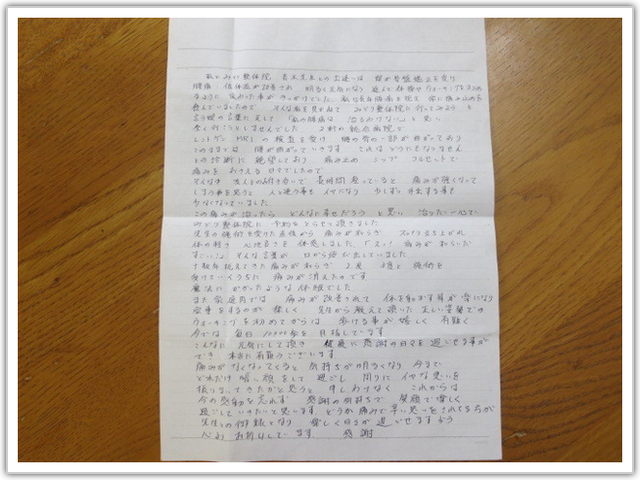 私とみどり整体院 青木先生との出逢いは 娘が骨盤矯正を受け
腰痛 倦怠感が改善され 明るく元気になり 進んで体操や ウォーキングをはじめ
るように 変わった事が きっかけでした 私は長年腰痛を抱え 常に痛み止めを
飲んでいましたので そんな私を見かねて みどり整体院に行ってみようと
言う娘の言葉に対して 「私の腰痛は 治るわけない」と思い
全く行こうとしませんでした 2軒の総合病院で
レントゲン MRI の検査を受け 腰の骨の一部が曲がっており
このままでは 腰が曲がっていきます これはどうにもなりません
との診断に 絶望しており 痛み止め シップ コルセットで
痛みを おさえる 日々でしたので
そんな中 友人との付き合いで 長時間 座っていると 痛みが強くなって
しまう事を思うと 人と逢う事も イヤになり 少しずつ 外出する事も
少なくなっていました
この痛みが治ったら どんなに幸せだろう と思い 治りたい一心で
みどり整体院に 予約をとらせて頂きました
先生の施術を受けた直後から 痛みが和らぎ スッと立ち上がれ
体の軽さ 心地良さを 体感しました、「え!! 痛みが和らいだ
すごい!」 そんな言葉が 口から飛び出していました
十数年抱えてきた痛みが和らぎ 2度 3度と 施術を
受けていくうちに 痛みが消えたのです
魔法に かかったような 体験でした
また 家庭内では 痛みが改善されて 体を動かす事が 楽になり
家事をするのが 楽しく 先生から教えて頂いた 正しい姿勢での
ウォーキングを初めてからは 歩ける事が嬉しく 有難く
今では 毎日 10000歩を 目指しています
こんなに 元気にして頂き 健康に感謝の日々を 過ごせる事が
でき 本当に有難うございます
痛みがなくなってくると 気持ちが明るくなり 今まで
どれだけ 暗い顔をして 過ごし 周りに イヤな思いを
振りまいてきたかと思うと 申しわけなく これからは
今の感動を忘れず 感謝の気持ちで 笑顔で 楽しく
過ごしていきたいと思います どうか痛みで辛い思いをされてる方が
先生との御縁となり 楽しく日々が過ごせますよう
心より お祈りしています 感謝